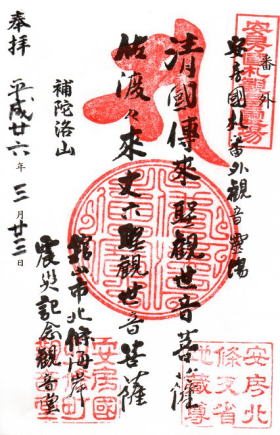 番外
安房國札番外観音霊場
清國傳来聖観世音菩薩
佐渡ヶ来丈六聖観世音菩薩
舘山市北條海岸
震災記念観音堂
補陀洛山
奉拝
平成廿六年三月廿三日
安房國札観音霊場
安房北
條支省
地蔵尊
安房國